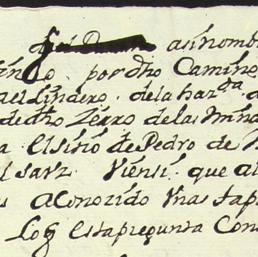 asi nomb
por dho Camino
el lindero . de la haz.da
de dho Zerro de las Mina
a El sitio de Pedro de
l sauz Viensi que a
s a Conozido Unas tap
Log esta pregunta Con